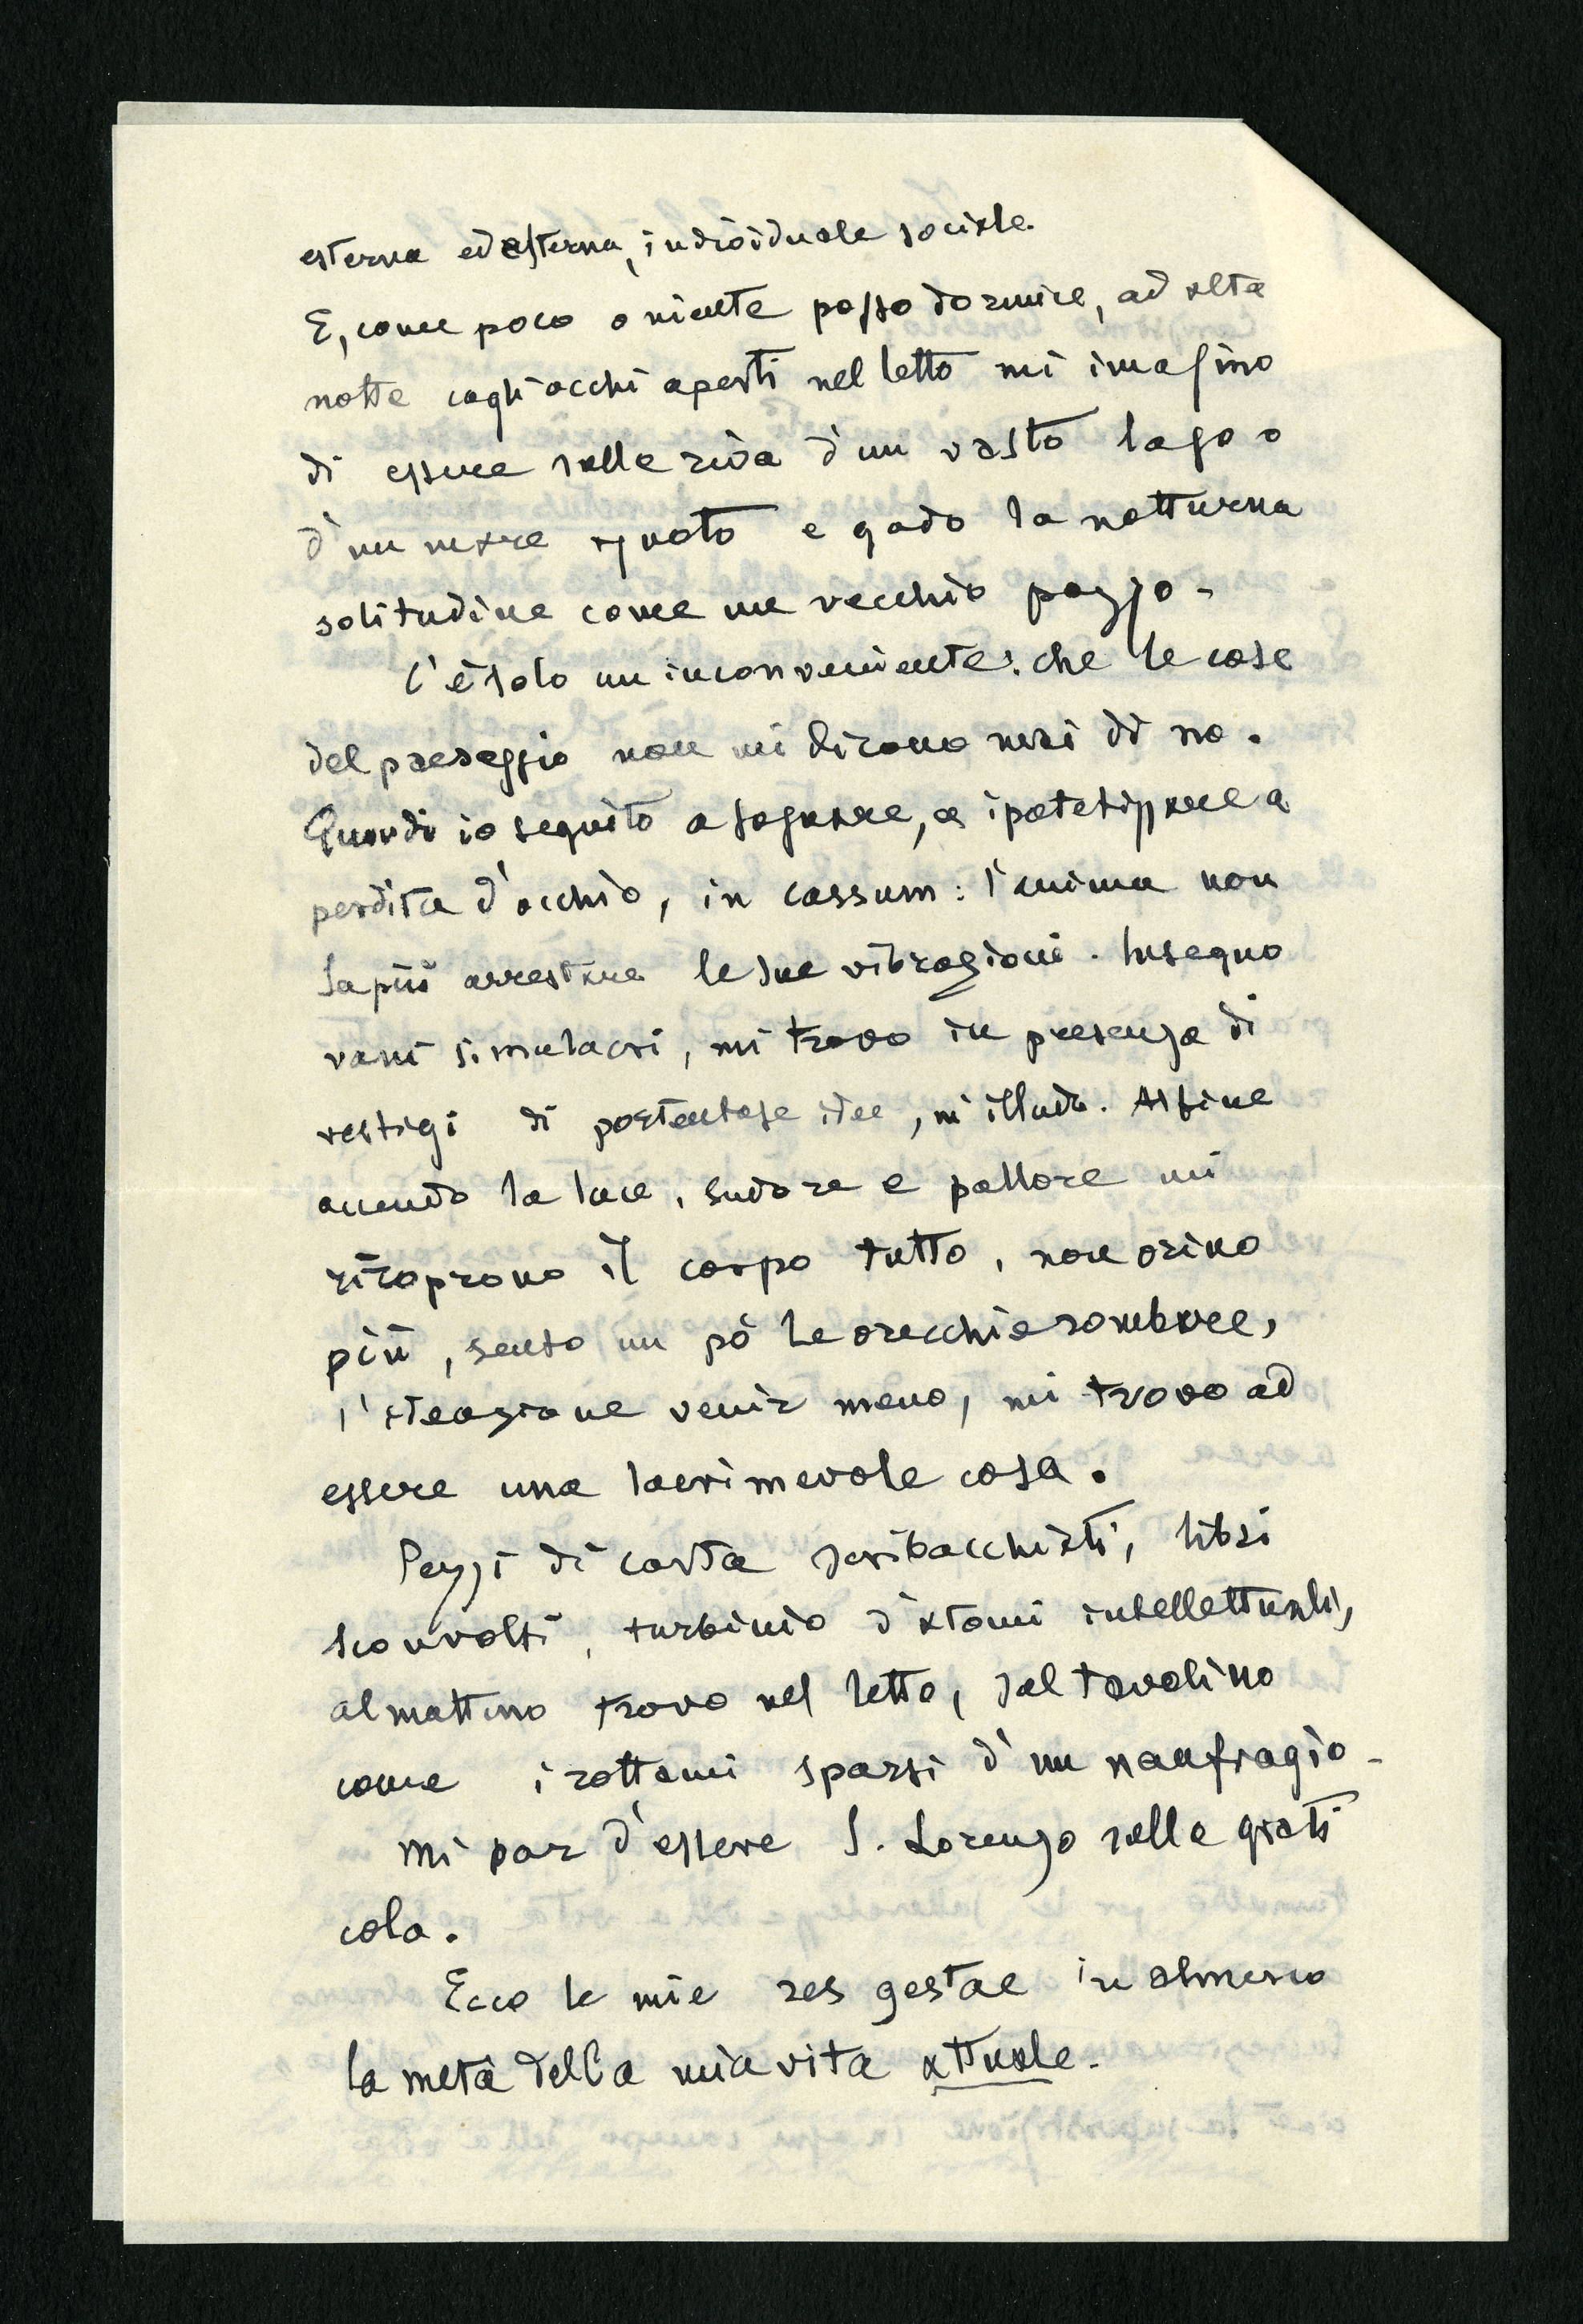 esterna ed esterna, individuale sociale.
E, come poco o niente posso dormire, ad alta
notte cogli occhi aperti nel letto mi imagino
di essere sulla riva d'un vasto lago o
d'un mare ignoto e godo la notturna
solitudine come un vecchio pazzo.
C'è solo un inconveniente: che le cose
del paesaggio non mi dicono mai di no.
Quindi io seguito a sognare, a ipotetizzare a
perdita d'occhio, in cassum: l'anima non
sa più arrestare le sue vibrazioni. Inseguo
vani simulacri, mi trovo in presenza di
vestigi di portentose idee, m'illudo. Alfine
accendo la luce, sudore e pallore mi
ricoprono il corpo tutto, non orino
più, sento un pò le orecchie rombare,
l'attenzione venir meno, mi trovo ad
essere una lacrimevole cosa.
Pezzi di carta scribacchiati, libri
sconvolti, turbinio d'atomi intellettuali,
al mattino trovo nel letto, sul tavolino
come i rottami sparsi d'un naufragio.
Mi par d'essere S. Lorenzo sulla grati
cola.
Ecco le mie res gestae in almeno
la metà della mia vita attuale.